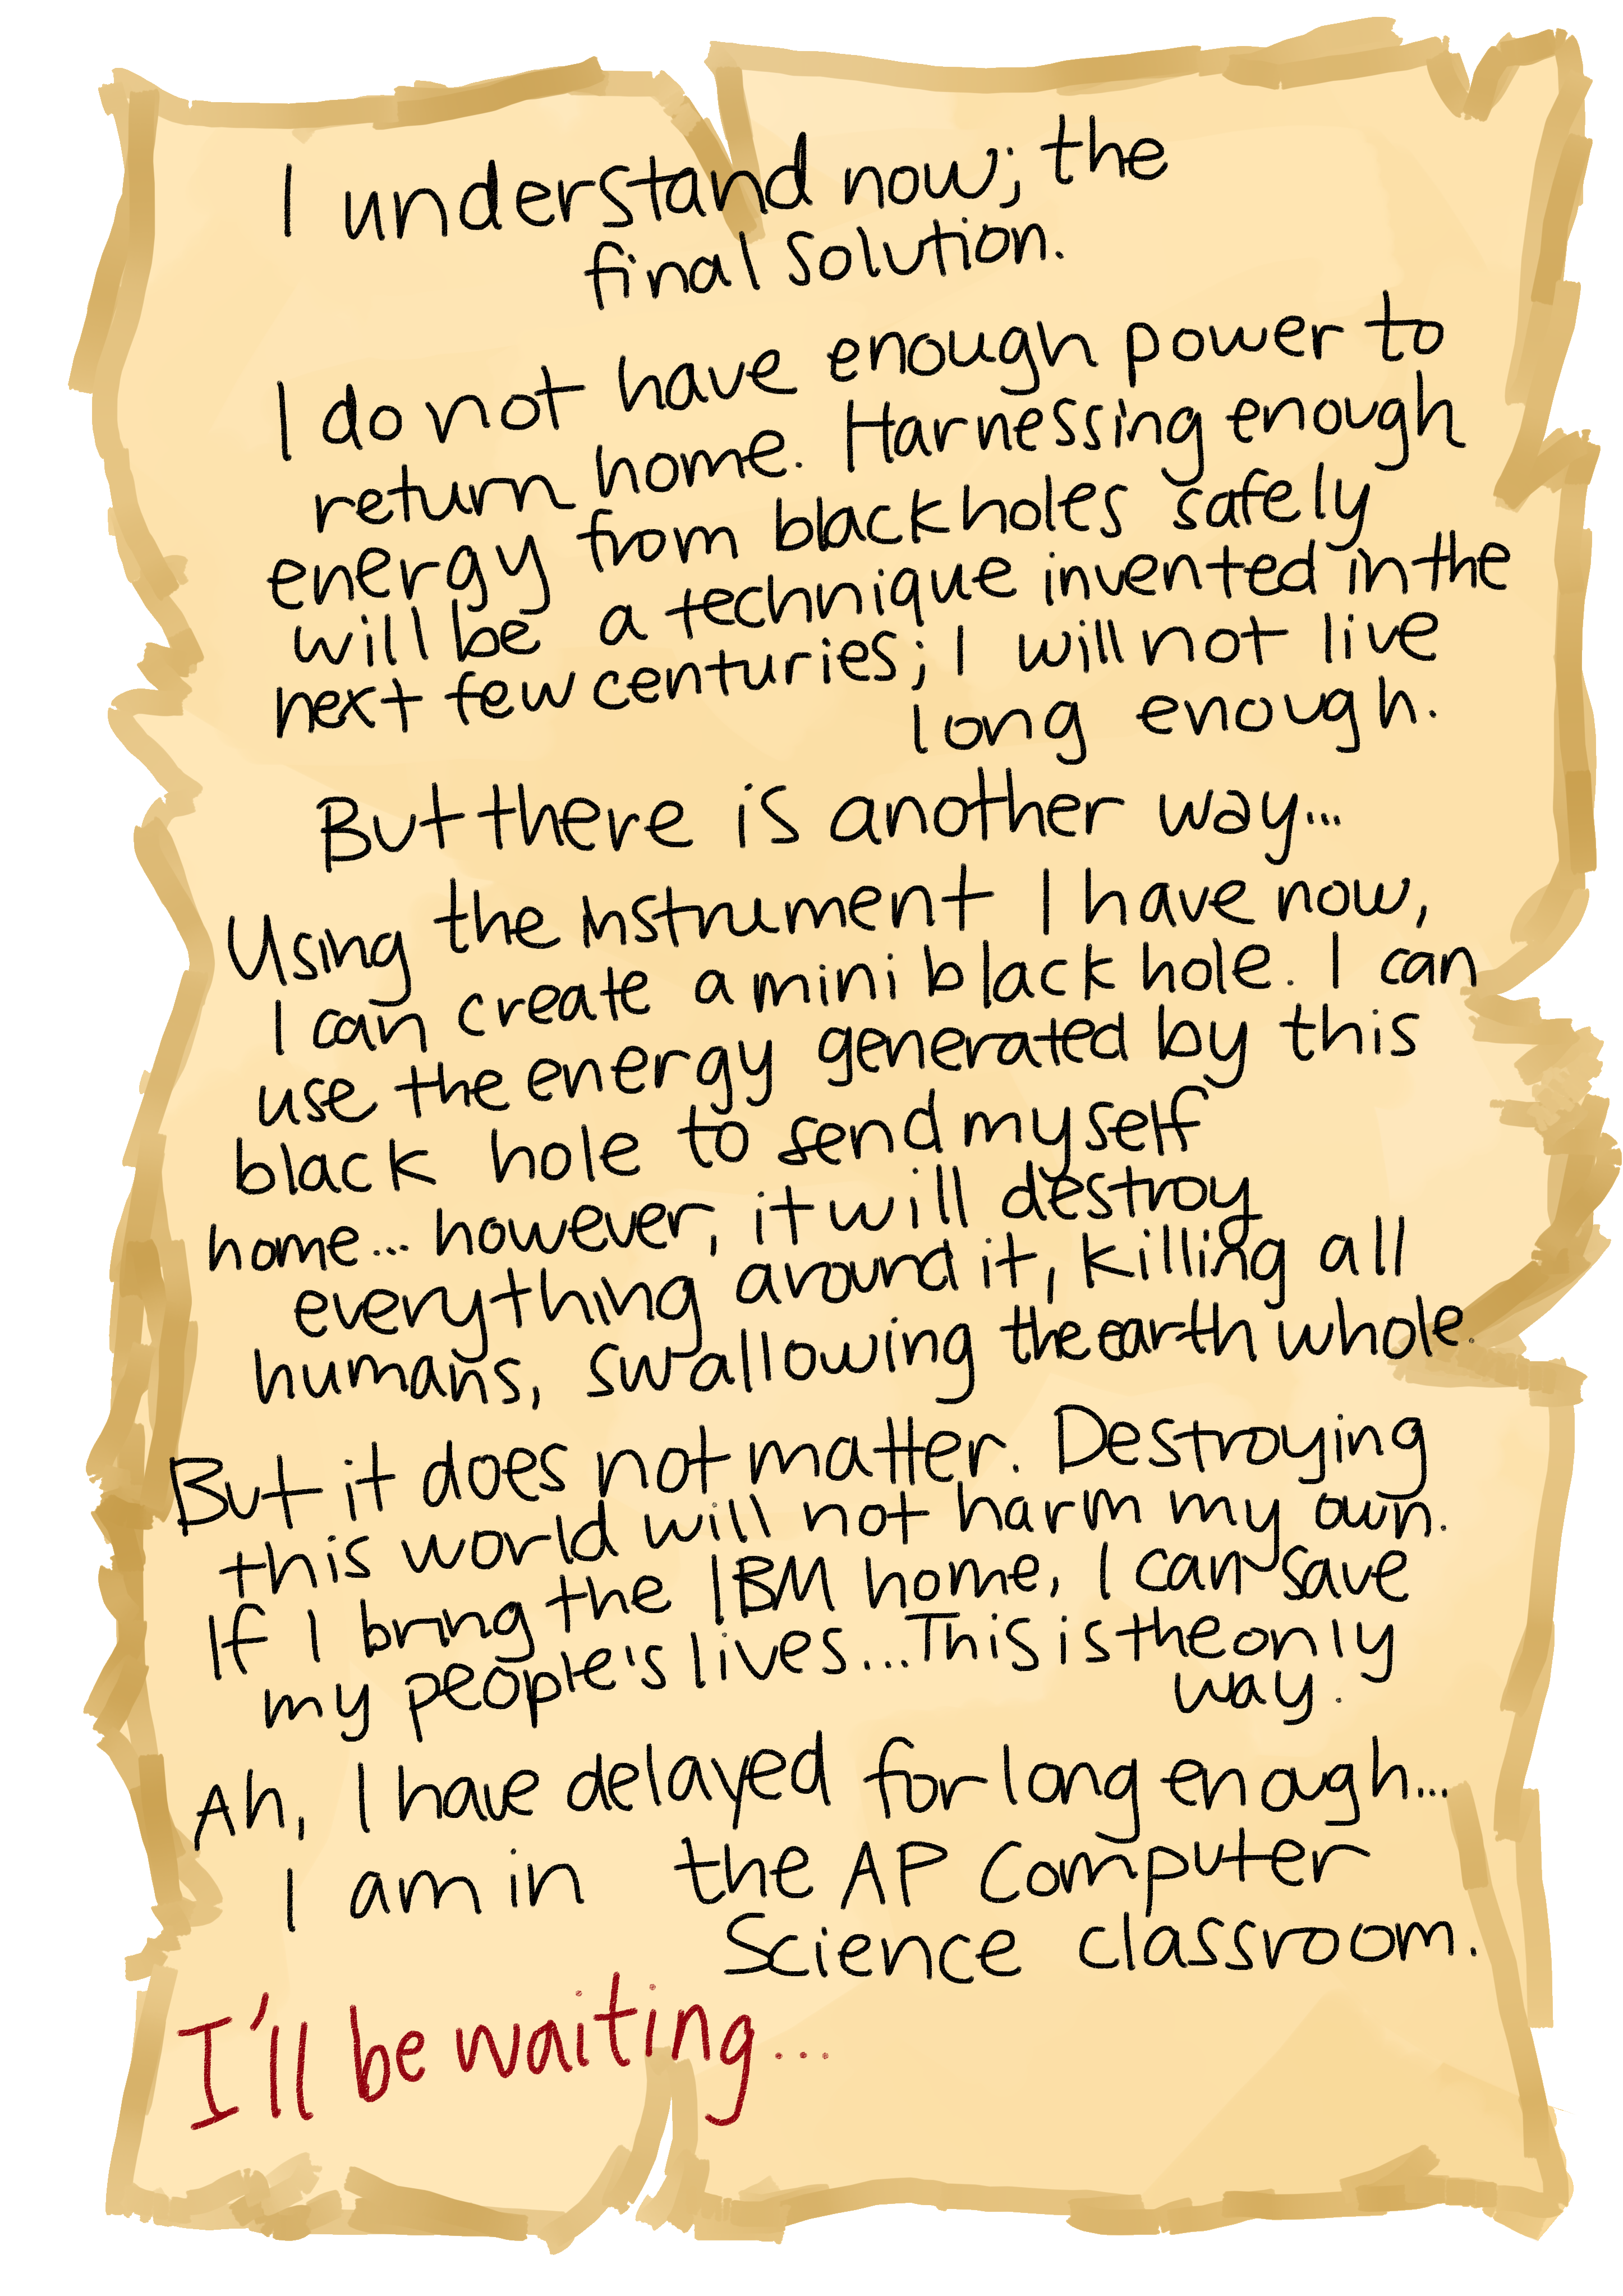 I understand now; the
final solution.
I do not have enough power to
return home. Harnessing enough
energy from blackholes safely
will be a technique invented in the
next few centuries; I will not live
long enough.
But there is another way...
Using the instrument I have now,
I can create a mini black hole. I can
use the energy generated by this
black hole to send myself
home... however, it will destroy
everything around it, killing all
humans, swallowing the earth whole.
But it does not matter. Destroying
this world will not harm my own.
If I bring the IBM home, I can save
my people's lives... This is the only
way.
Ah, I have delayed for long enough...
I am in the AP Computer
Science classroom.
I'll be waiting...